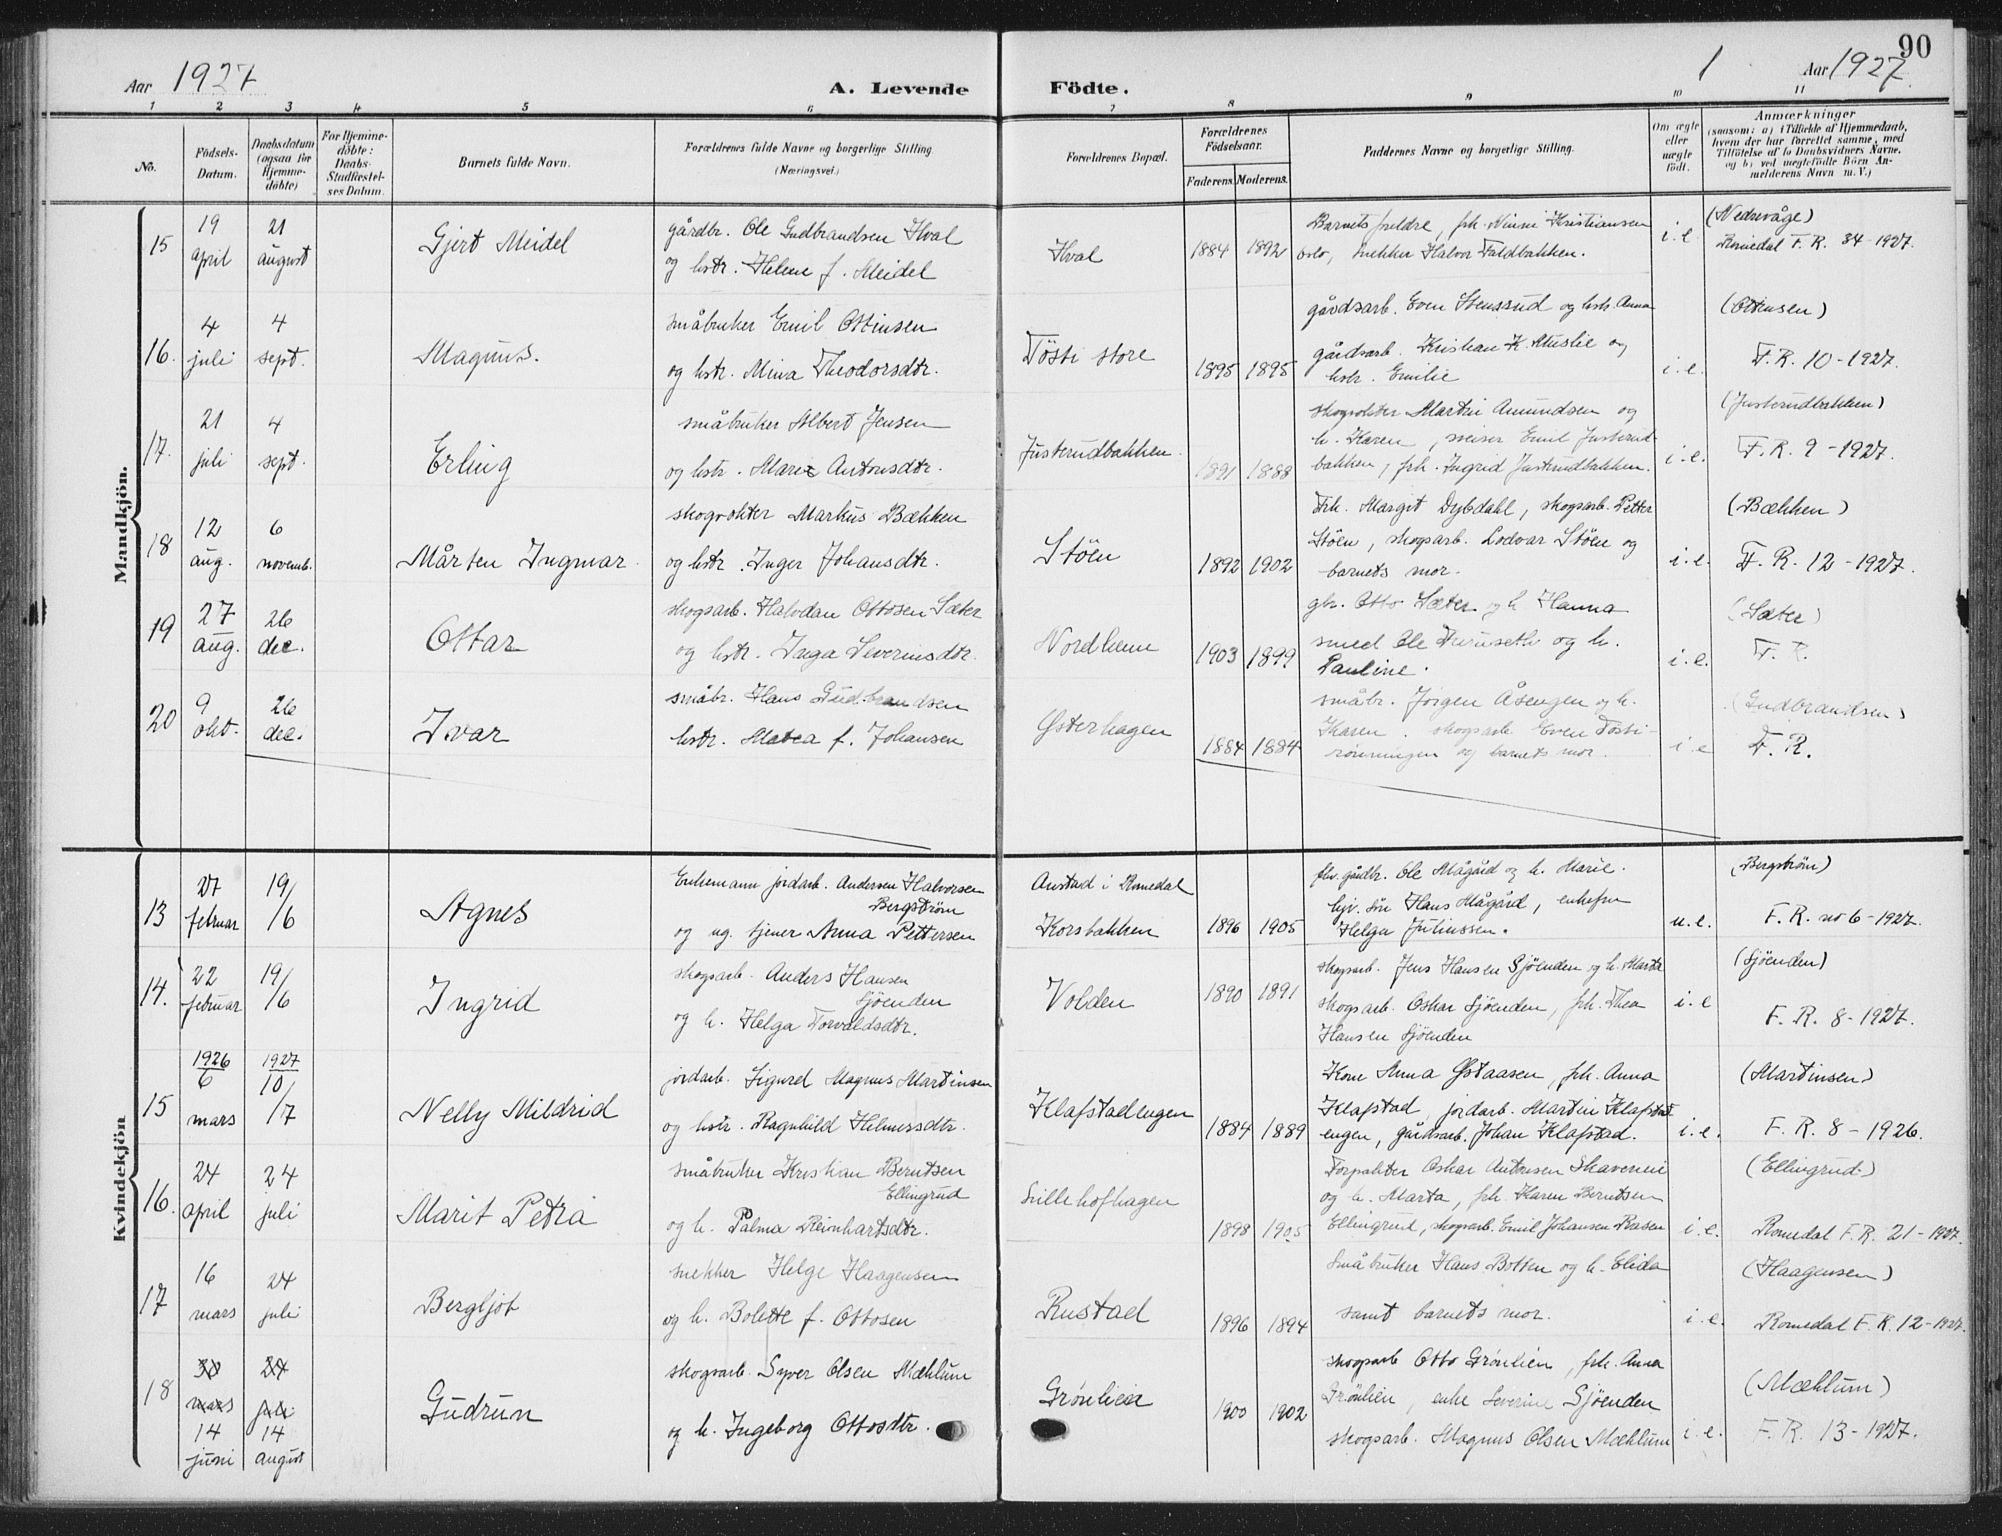 90
Aar 1927
A. Levende Födte.
1 Aar 1927.
1 2 3 4 5 6 7 8 9 10 11
No.
Födsels-Datum.
Daabsdatum (ogsaa for Hjemme-döbte)
For Hjemme-döbte: Daabs-Stadfæstel-ses Datum.
Barnets fulde Navn.
Forældrenes fulde Navne og borgerlige Stilling.
(Næringsvei.)
Forældrenes Bopæl.
Forældrenes Födselsaar.
Faderens. Moderens.
Faddernes Navne og borgerlige Stilling.
Om ægte eller uægte födt.
Anmærkninger
(saasom: a) i Tilfælde af Hjemmedaab,
hvem der har forrettet samme, med
Tilföielse af to Daabsvidners Navne,
og b) ved uegtefödte Börn An-
melderens Navn m. V.)
Mandkjön.
15
19 april
21 august
Gjert Meidel
gårdbr. Ole Gudbrandsen Hval
og hstr. Helene f. Meidel
Hval
1884 1892
Barnets foreldre, frk. Ninni Kristiansen
Oslo, snekker Halvor Faldbakken.
i.e
(Nedrevåge)
Romedal F. R. 34-1927.
16.
4 juli
4 sept.
Magnus.
småbruker Emil Ottinsen
og hstr. Mina Theodorsdtr.
Tösti store
1895 1895
gårdsarb. Even Stensrud og hstr. Anna
gårdsarb. Kristian K. Muslie og
hstr. Emilie
i.e.
(Ottinsen)
F.R. 10-1927.
17.
21 juli
4 sept.
Erling
småbruker Albert Jensen
og hstr. Marie Antonsdtr.
Justerudbakken.
1891 1888
skogvokter Martin Amundsen og
h. Karen, sveiser Emil Justerud-
bakken, frk. Ingrid Justerudbakken.
i.e.
(Justerudbakken)
F.R. 9-1927.
18
12 aug.
6 novemb.
Mårten Ingmar.
skogvokter Markus Bækken
og hstr. Inger Johansdtr.
Stöen
1892 1902
Frk. Margit Dybdahl, skogsarb. Petter
Stöen, skogsarb. Lodvar Stöen og
barnets mor.
i.e.
(Bækken)
F. R. 12-1927.
19
27 aug.
26 dec.
Ottar
skogsarb. Halvdan Ottosen Sæter
og hstr. Inga Severinsdtr.
Nordheim
1903 1899
gbr. Otto Sæter og h. Hanna
smed Ole Furuseth og h.
Pauline.
i.e.
(Sæter)
F. R.
20
9 okt.
26 dec.
Ivar
småbr. Hans Gudbrandsen
hstr. Matea f. Johansen
Østerhagen
1884 1884
småbr. Jörgen Åsengen og h.
Karen. skogsarb. Even Tösti-
rönningen og barnets mor.
i.e
(Gudbrandsen)
F. R.
Kvindekjön
13
27 februar
19/6
Agnes
Enkemann jordarb. Andersen Halvorsen
Bergström
og ug. tjener Anna Pettersen
Anstad i Romedal
Korsbakken
1896 1905
fhv. gårdbr. Ole Mågård og h. Marie.
hjv. sön Hans Mågård, enkefru
Helga Juliussen.
u.e.
(Bergström)
F.R. no 6-1927.
14.
22 februar
19/6
Ingrid
skogsarb. Anders Hansen
Sjöenden
og h. Helga Torvaldsdtr.
Volden
1890 1891
skogsarb. Jens Hansen Sjöenden og h. Marta
skogsarb. Oskar Sjöenden, frk. Thea
Hansen Sjöenden
i.e
(Sjöenden)
F. R. 8-1927.
15
1926
6 mars
1927
10/7
Nelly Mildrid
jordarb. Sigurd Magnus Martinsen
og hstr. Ragnhild Helmersdtr.
Klafstadengen
1884 1889
Kone Anna Østaasen, frk. Anna
Klafstad, jordarb. Martin Klafstad-
engen, gårdsarb. Johan Klafstad.
i.e.
(Martinsen)
F. R. 8-1926.
16.
24 april
24 juli
Marit Petra
småbruker Kristian Berntsen
Ellingrud
og h. Palma Reinhartsdtr.
Lillehofhagen
1898 1905
Forpakter Oskar Antonsen Skavenie
og h. Marta, frk. Karen Berntsen
Ellingrud, skogsarb. Emil Johansen Rasen
i.e.
(Ellingrud)
Romedal F. R. 21-1927.
17
16 mars
24 juli
Bergljot
snekker Helge Haagensen
og h. Bolette f. Ottosen
Rustad
1896 1894
Småbruker Hans Botten og h. Elida
samt barnets mor.
i.e.
(Haagensen)
Romedal F.R. 12-1927.
18
30 mars
24 juli
14 juni
14 august
Gudrun
skogsarb. Syver Olsen Mæhlum
og h. Ingeborg Ottosdtr.
Grönlien
1900 1902
skogsarb Otto Grönlien, frk. Anna
Grönlien, enke Severine Sjöenden
skogsarb. Magnus Olsen Mæhlum
i.e.
(Mæhlum)
F. R. 13-1927.